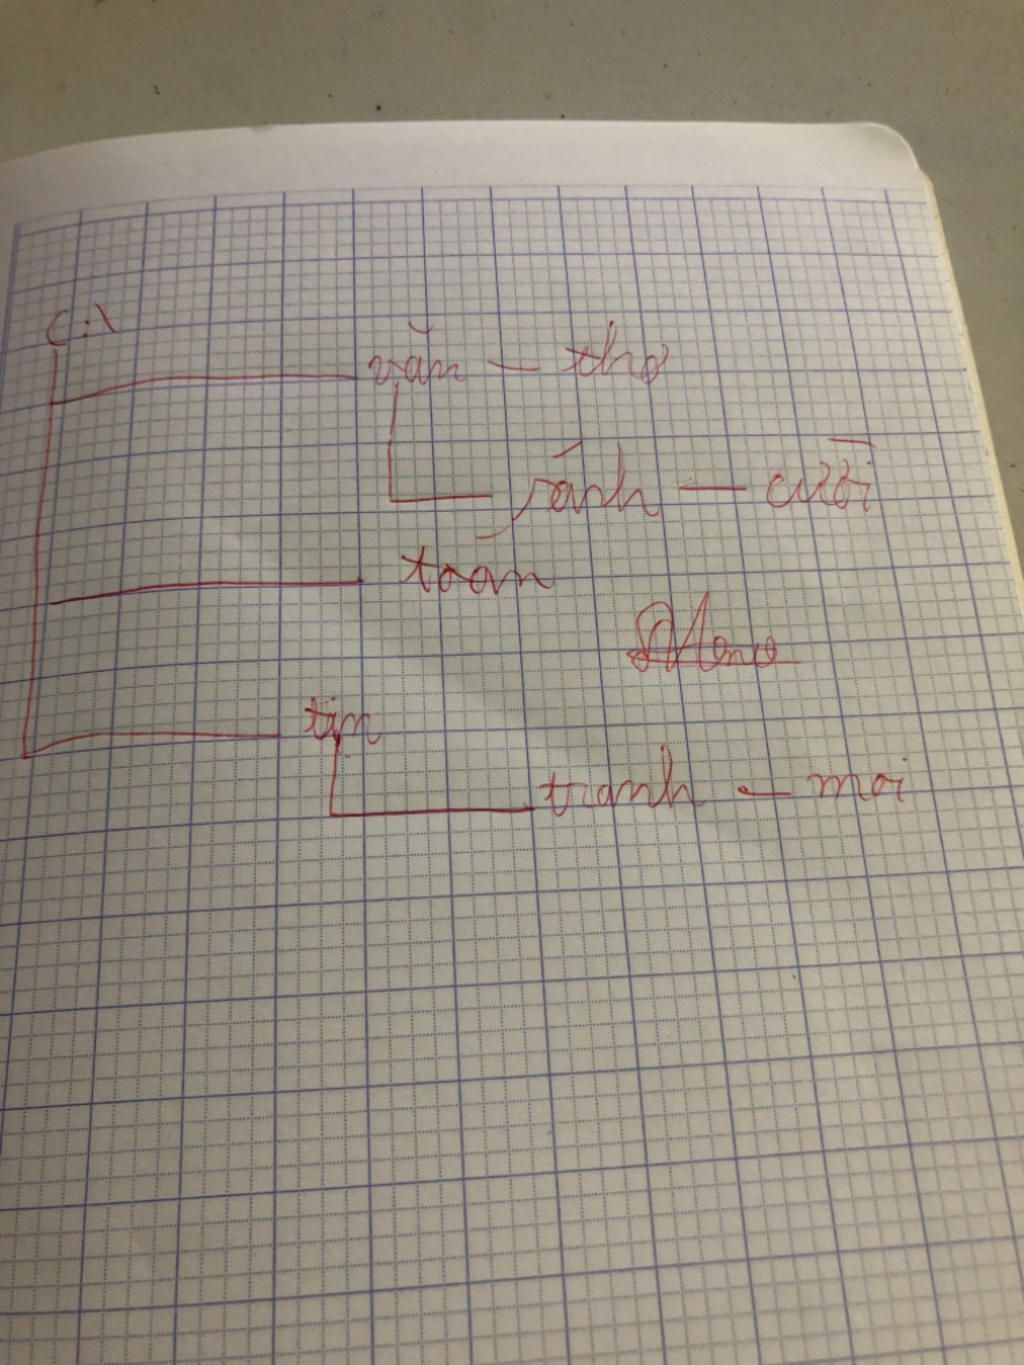 C:\
văn - thơ
sánh - cười
toán
tin
tranh - moi